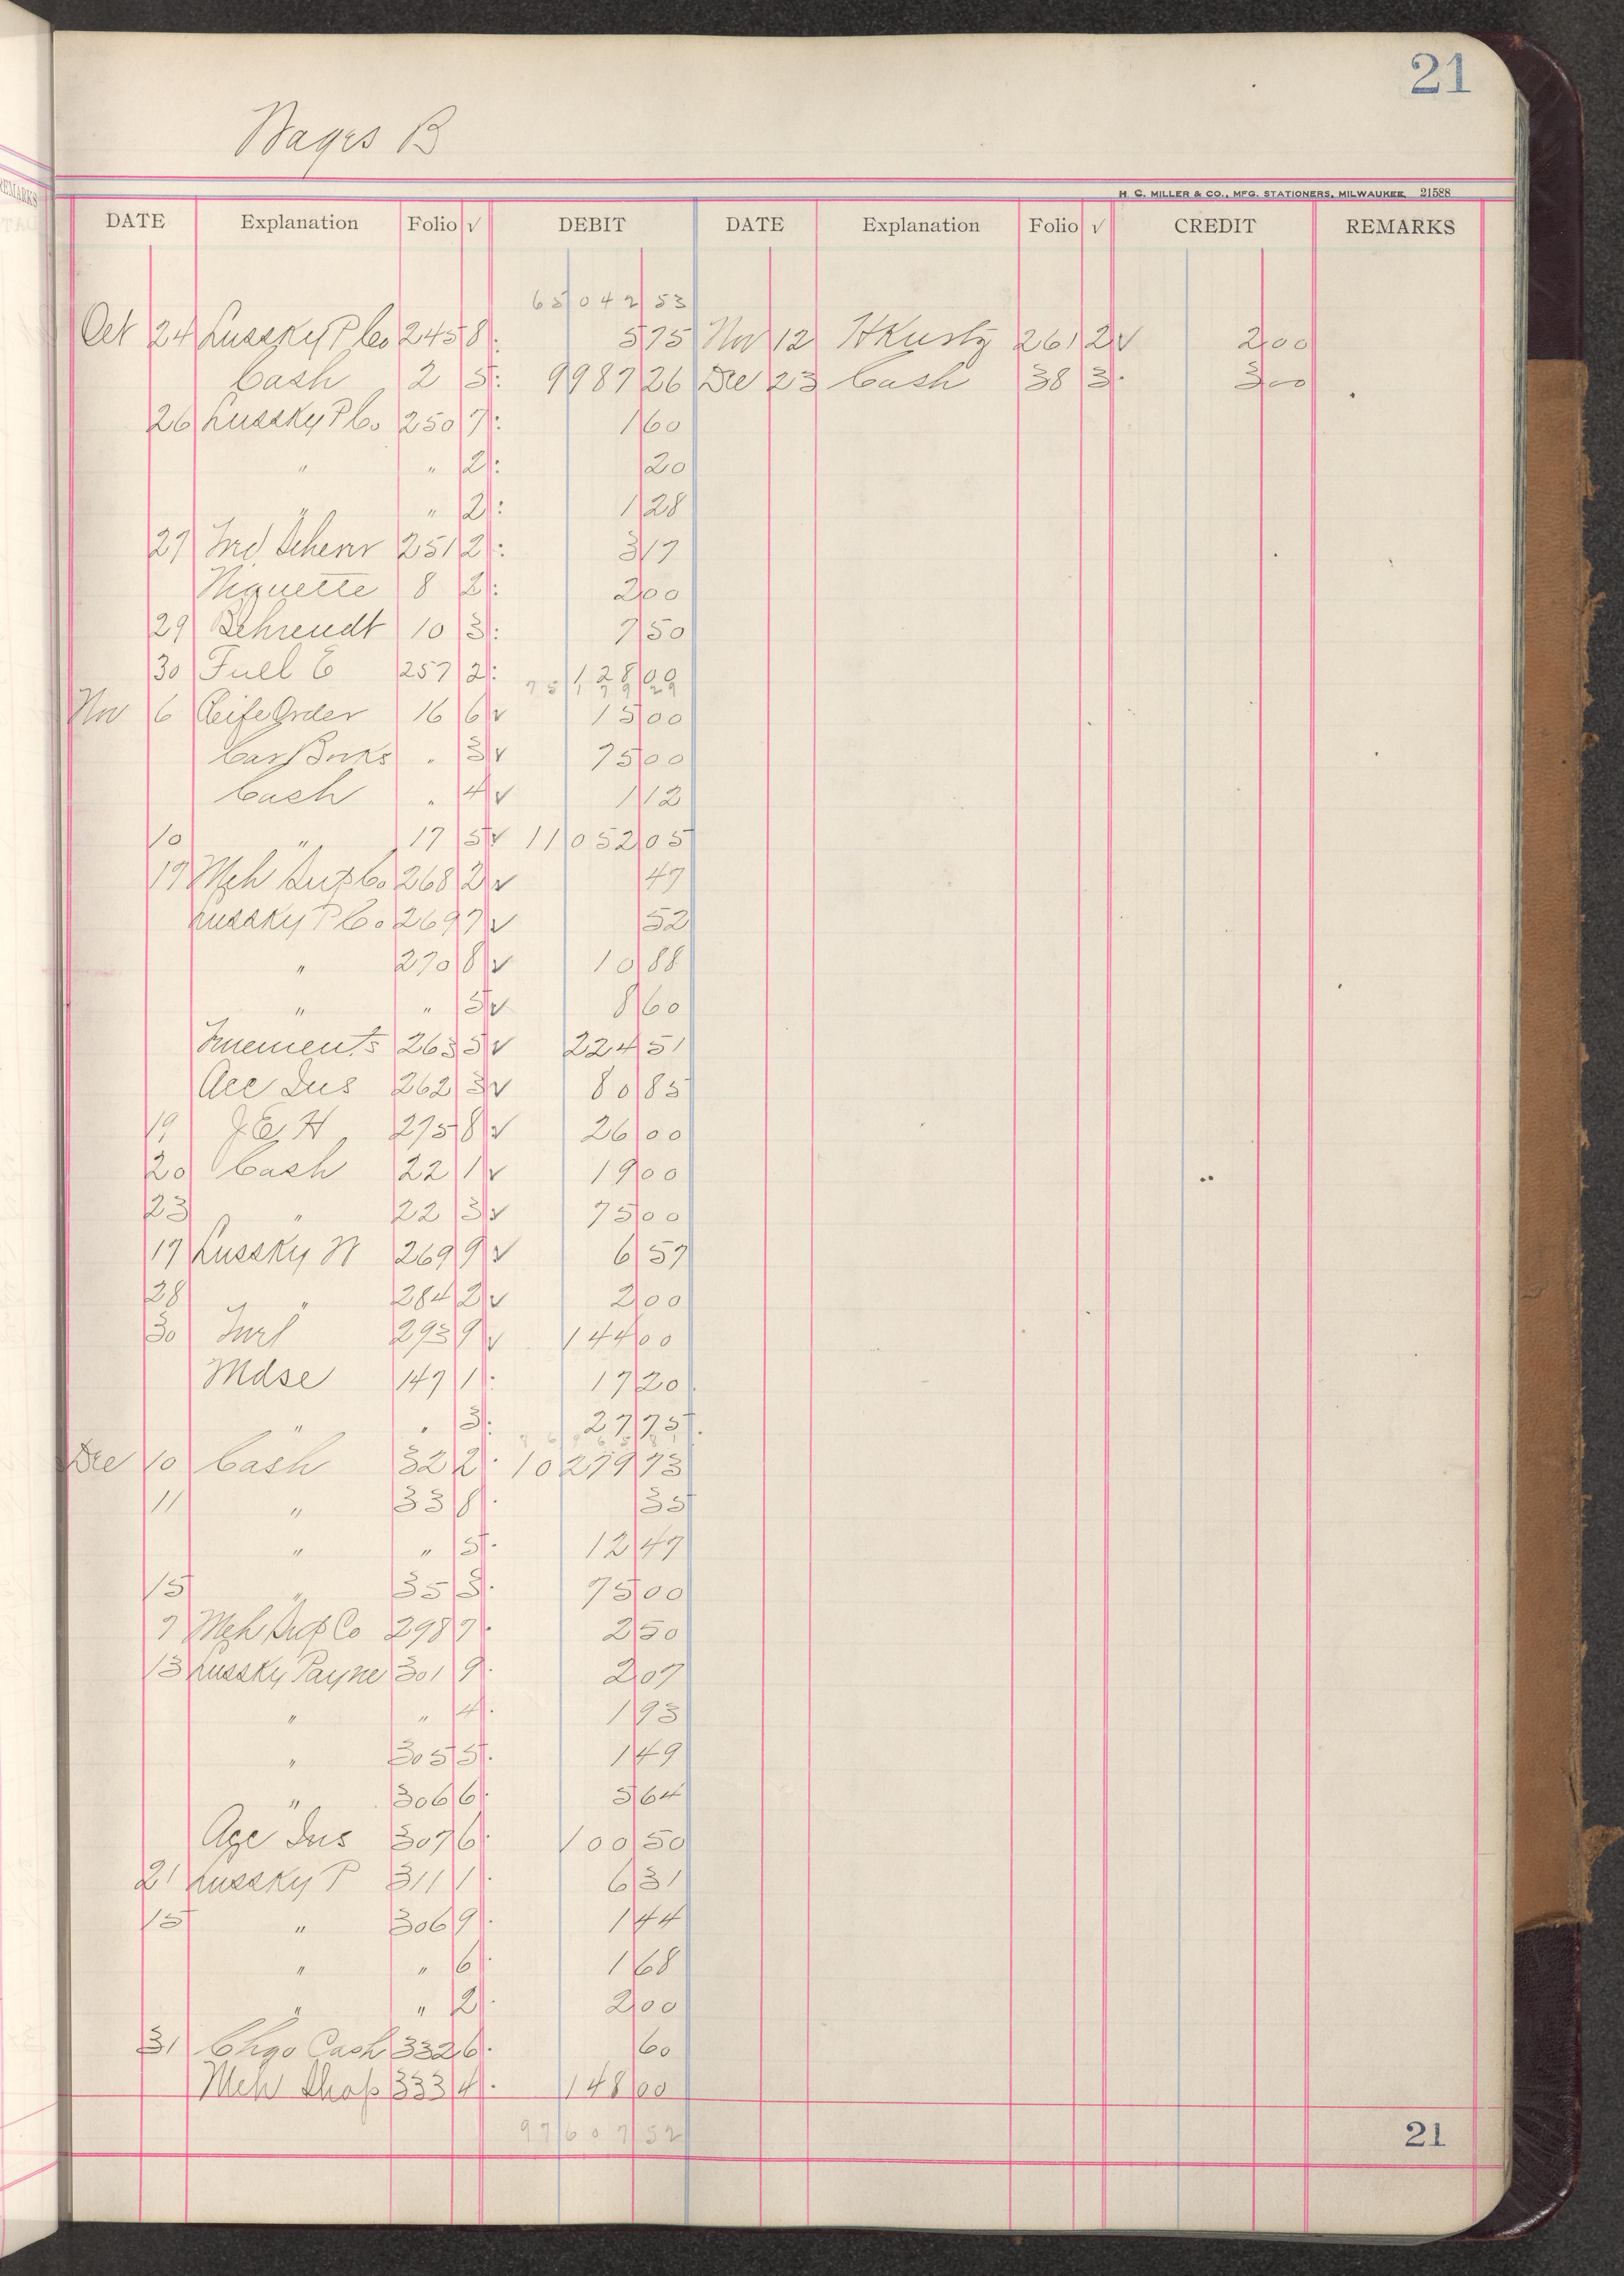 21
Wages B
H. C. MILLER & CO., MFG. STATIONERS, MILWAUKEE. 21588
DATE Explanation Folio √ DEBIT DATE Explanation Folio √ CREDIT REMARKS
65042 53
Oct 24 Lussky P Co 245 8 5 75 Nov 12 261 2 √ 2 00
Cash 2 5 9987 26 Dec 23 Cash 38 3 3 00
26 Lussky P Co 250 7 1 60
" " 2 20
" " 2 1 28
27 251 2 3 17
Niquette 8 2 2 00
29 Behrendt 10 3 7 50
30 Fuel E 257 2 128 00
75 179 29
Nov 6 Order 16 6 √ 15 00
Car " 3 √ 75 00
Cash " 4 √ 1 12
10 " 17 5 √ 11052 05
17 Mch Sup Co 268 2 √ 47
Lussky P Co 269 7 √ 52
" 270 8 √ 10 88
" " 5 √ 8 60
263 5 √ 224 51
Acc Ins 262 3 √ 80 85
19 J E H 275 8 √ 26 00
20 Cash 22 1 √ 19 00
23 " 22 3 √ 75 00
17 Lussky 269 9 √ 6 57
28 " 284 2 √ 2 00
30 293 9 √ 144 00
Mdse 147 1 17 20
" " 3 27 75
Dec 10 Cash 32 2 10279 73
11 " 33 8 35
" " 5 12 47
15 " 35 3 75 00
7 Mch Sup Co 298 7 2 50
13 Lussky Payne 301 9 2 07
" " 4 1 93
" 305 5 1 49
" 306 6 5 64
Age Ins 307 6 100 50
21 Lussky P 311 1 6 31
15 " 306 9 1 44
" " 6 1 68
" " 2 2 00
31 Chgo Cash 332 6 60
Mch Shop 333 4 148 00
97607 52
21